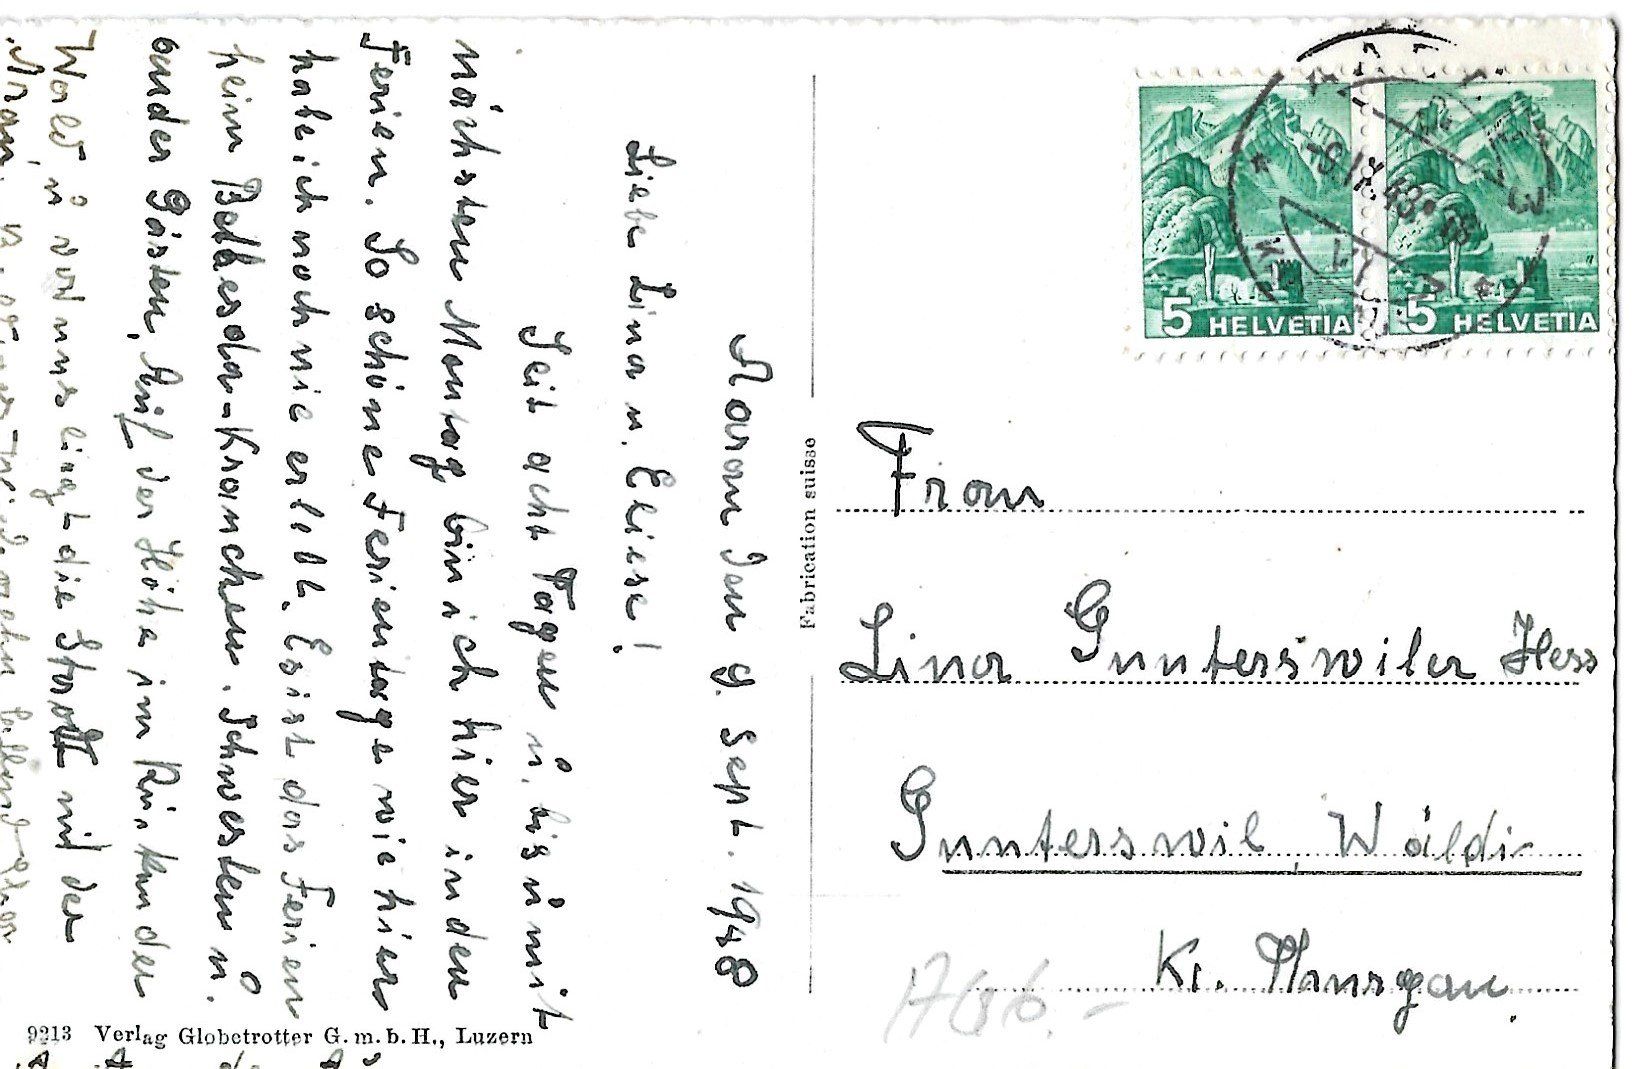 Aarau den 9. Sept. 1948
Liebe Lina u. Eliese!
Seit acht Tagen ů. bis ů mit
nächsten Montag bin ich hier in den
Ferien. So schöne Ferientage wie hier
habe ich noch nie erlebt. Es ist das Ferien
heim Bethesda-Kranchen. Schwestern ů.
ander Gästen, Auf der Höhe im Rücken der
Wald ů vor uns liegt die Stadt mit der
Frau
Lina Gunterswiler Hess
Gunterswil, Wäldi
Kt. Thurgau.
Fabrication suisse
9213 Verlag Globetrotter G.m.b.H., Luzern
5 HELVETIA
5 HELVETIA
-9.IX.48